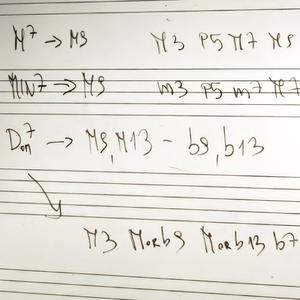 M7 → M9 M3 P5 M7 M9
MIN7 → M9 m3 P5 m7 M9
Dom7 → M9, M13 - b9, b13
M3 M or b9 M or b13 b7